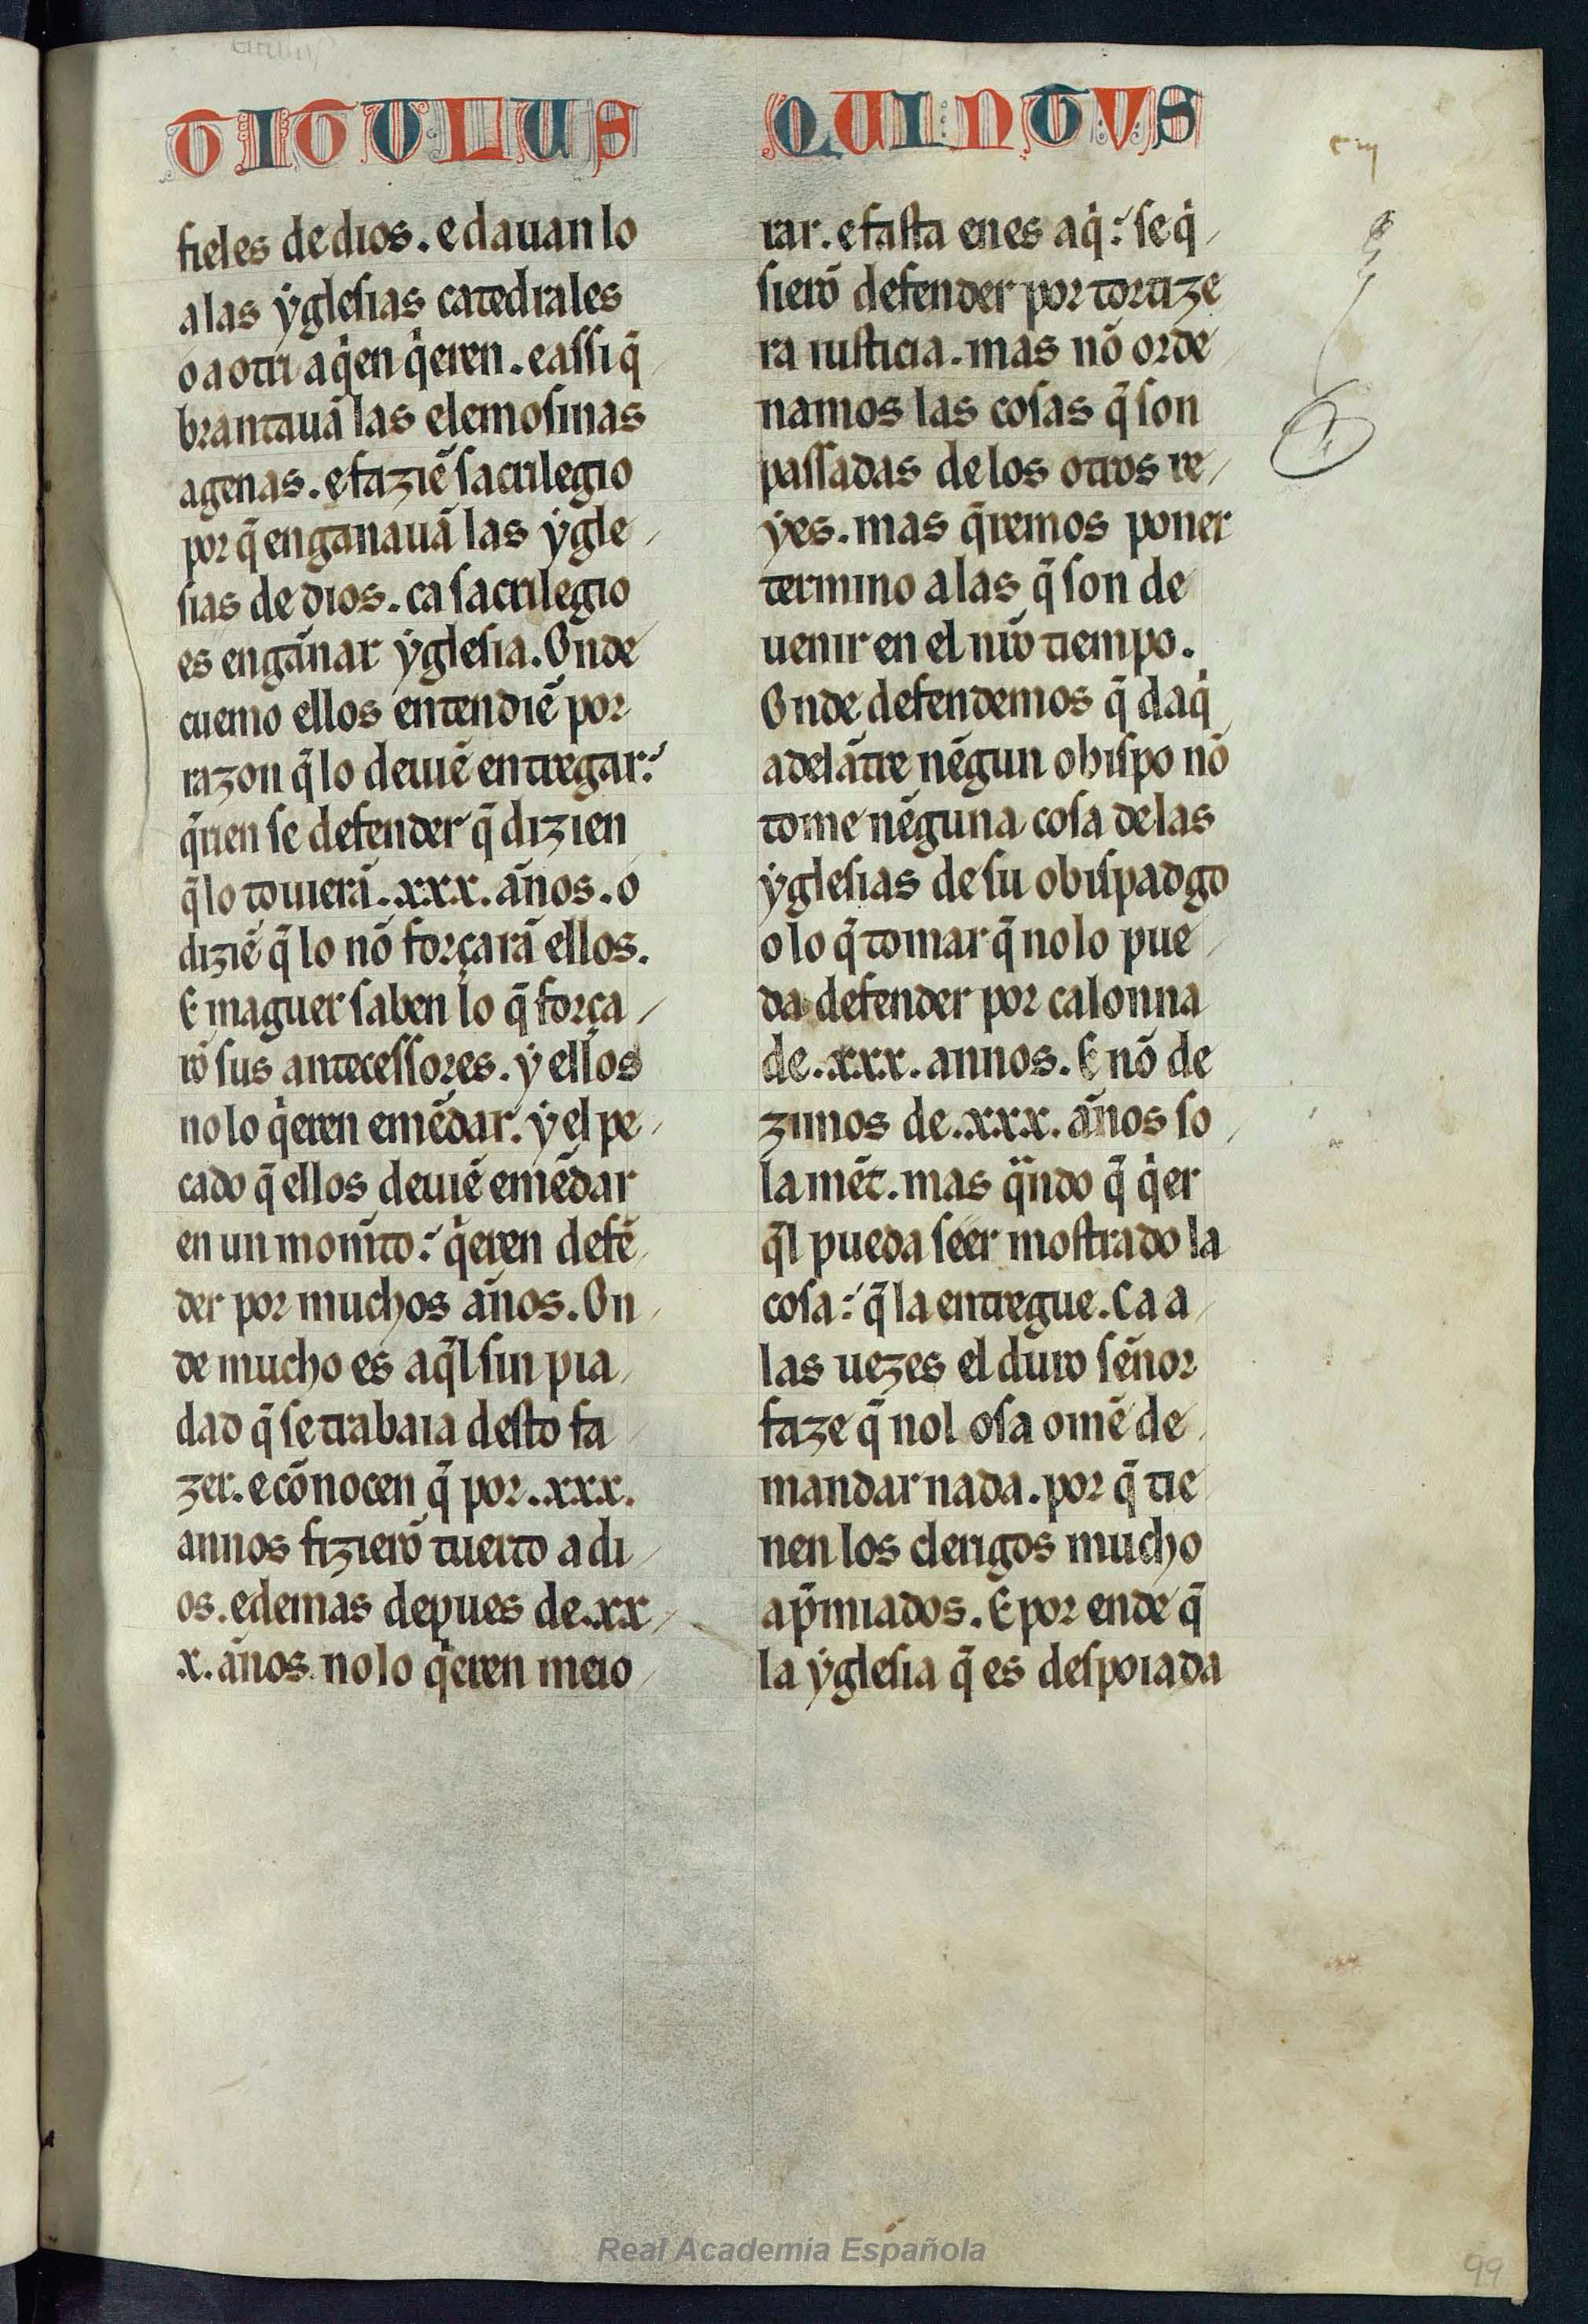 TITULUS QUINTVS
fieles de dios. e dauan lo
a las ẏglesias catedrales
o a otri a qͥen qͥeren. e assi q̃
brantauã las elemosinas
agenas. e faziẽ sacrilegio
por q̃ enganauã las ẏgle
sias de dios. ca sacrilegio
es engãnar ẏglesia. Onde
cuemo ellos entendiẽ por
razon q̃ lo deuiẽ entregar:
q̃rien se defender q̃ dizien
q̃ lo touierã .xxx. ãnos. o
diziẽ q̃ lo nõ forçarã ellos.
E maguer saben lo q̃ força
rõ sus antecessores. ẏ ellos
no lo qͥeren emẽdar. ẏ el pe
cado q̃ ellos deuiẽ emẽdar
en un momẽto: qͥeren defẽ
der por muchos ãnos. On
de mucho es aq̃l sin pia
dad q̃ se trabaia desto fa
zer. e cõnocen q̃ por .xxx.
annos fizierõ tuerto a di
os. e demas depues de .xx
x. ãnos no lo qͥeren meio
rar. e fasta en es aqͥ: se qͥ
sierõ defender por tortize
ra iusticia. mas nõ orde
namos las cosas q̃ son
passadas de los otros re
ẏes. mas q̃remos poner
termino a las q̃ son de
uenir en el nr̃o tiempo.
Onde defendemos q̃ daqͥ
adelãtre nẽgun obispo nõ
tome nẽguna cosa de las
ẏglesias de su obispadgo
o lo q̃ tomar q̃ no lo pue
da defender por calonna
de .xxx. annos. E nõ de
zimos de .xxx. ãnos so
la mẽt. mas qͣndo q̃ qͥer
q̃l pueda seer mostrado la
cosa: q̃ la entregue. Ca a
las uezes el duro sẽnor
faze q̃ nol osa omẽ de
mandar nada. por q̃ tie
nen los clerigos mucho
ap̃miados. E por ende q̃
la ẏglesia q̃ es despoiada
Real Academia Española
99